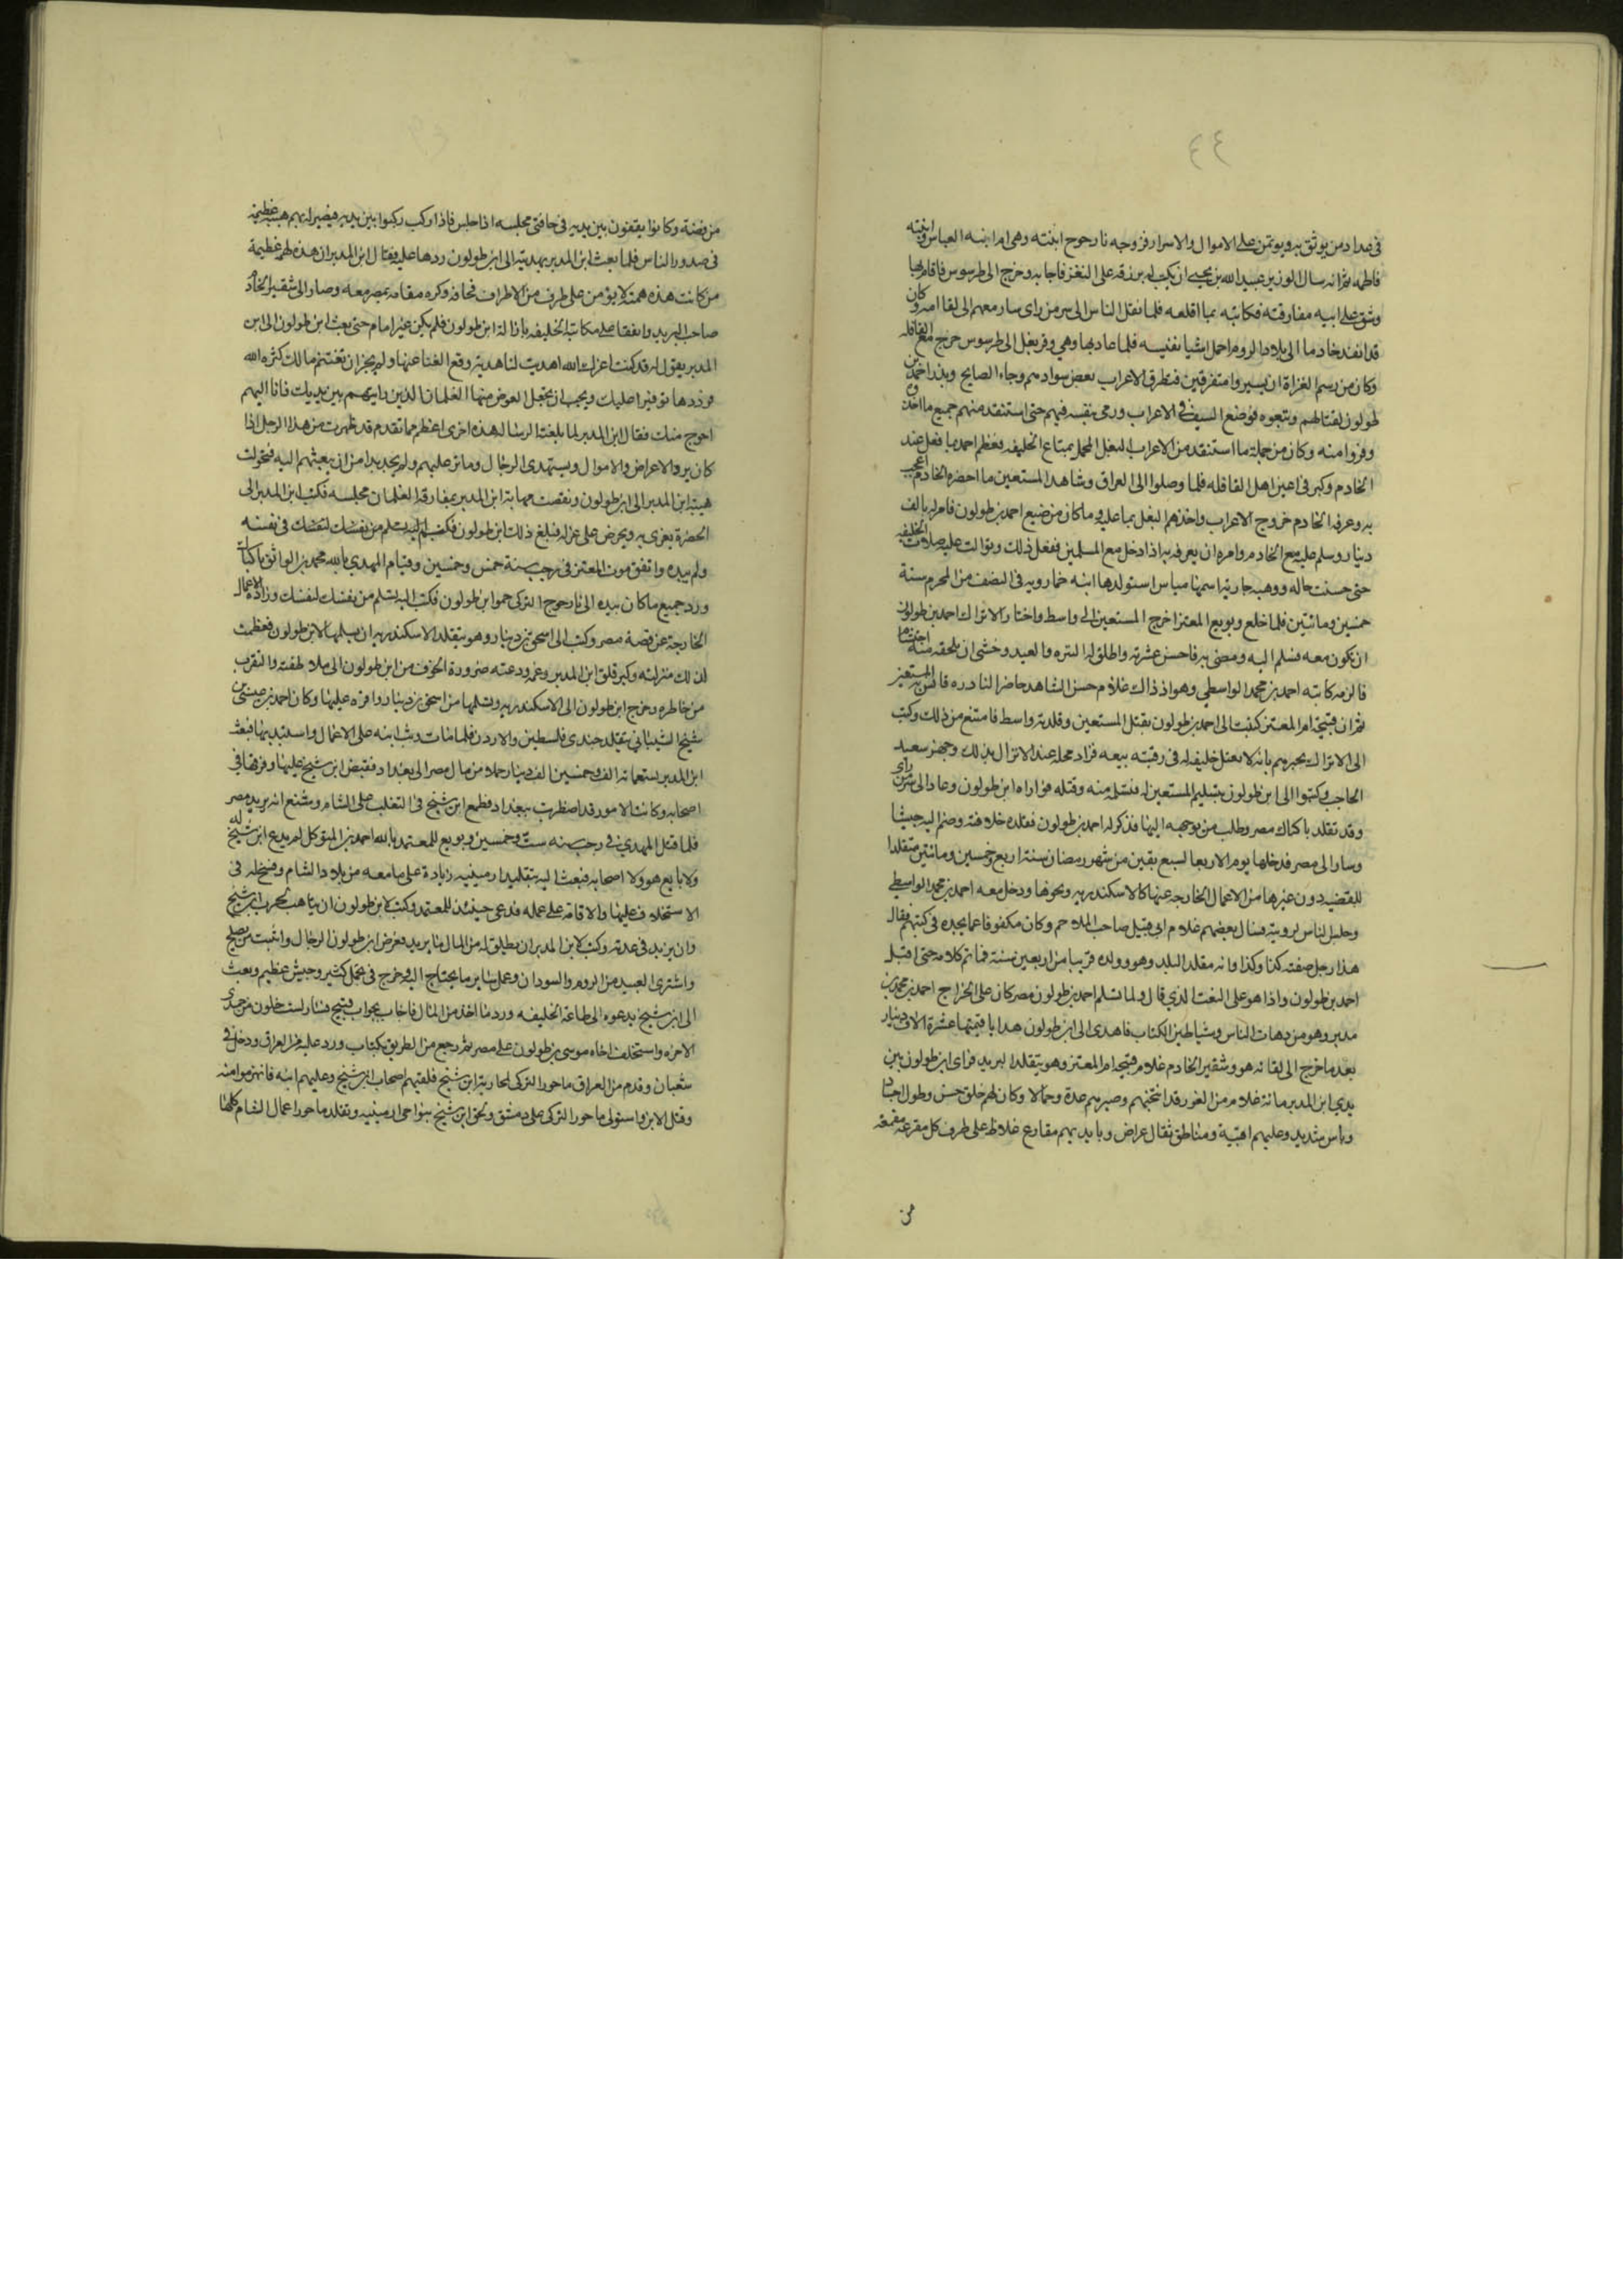 ٤٤
في عداد من يوثق به ويوتمن على الاموال والاسرار فزوجه نارجوح ابنته وهي ام ابنه العباس وابنته
فاطمه ثم انه سال الوزير عبيد الله بن يحيى ان يكتب له برزقه على الثغر فاجابه وخرج الى طرسوس فاقام بها
وشق على ابيه مفارقته فكاتبه بما اقلعه فلما نقل الناس الى سر من راى سار معهم الى لقا امه وكان
قد انفد خادما الى بلاد الروم لحمل اشيا نفيسه فلما عاد بها وهي وقر بغل الى طرسوس خرج مع القافله
وكان من رسم الغزاة ان يسيروا متفرقين فتطرق الاعراب بعض سوادهم وجاء الصايح وبدر احمد بن
طولون لقتالهم وتبعوه فوضع السيف في الاعراب ورمى بنفسه فيهم حتى استنقد منهم جميع ما اخذوه
وفروا منه وكان من جملة ما استنقد من الاعراب البغل المحمل بمتاع الخليفه فعظم احمد بما فعل عند
الخادم وكبر في اعين اهل القافله فلما وصلوا الى العراق وشاهد المستعين ما احضره الخادم اعجب
به وعرفه الخادم خروج الاعراب واخذهم البغل بما عليه وما كان من صنيع احمد بن طولون فامر له بالف
دينار وسلم عليه مع الخادم وامره ان يعرفه به اذا دخل مع المسلمين ففعل ذلك وتوالت عليه صلات الخليفه
حتى حسنت حاله ووهبه جارية اسمها مياس استولدها ابنه خمارويه في النصف من المحرم سنة
خمسين ومائتين فلما خلع وبويع المعتز اخرج المستعين الى واسط واختار الاتراك احمد بن طولون
ان يكون معه فسلم اليه ومضى به فاحسن عشرته واطلق له التنزه والصيد وخشى ان يلحقه منه احتشام
فالزمه كاتبه احمد بن محمد الواسطي وهو اذ ذاك غلام حسن الشاهد حاضر النادره فانس به المستعين
ثم ان قبيحه ام المعتز كتبت الى احمد بن طولون بقتل المستعين وقلدته واسط فامتنع من ذلك وكتب
الى الاتراك يخبرهم بانه لا يقتل خليفه له في رقبته بيعه فزاد محله عند الاتراك بذلك وجهز سعيد
الحاجب وكتبوا الى ابن طولون بتسليم المستعين له فتسلمه منه وقتله فواراه ابن طولون وعاد الى سر من راى
وقد تقلد باكباك مصر وطلب من يوجهه اليها فذكر له احمد بن طولون فقلده خلافته وضم اليه جيشا
وسار الى مصر فدخلها يوم الاربعا لسبع بقين من شهر رمضان سنة اربع وخمسين ومائتين متقلدا
للقضيه دون غيرها من الاعمال الخارجه عنها كالاسكندريه ونحوها ودخل معه احمد بن محمد الواسطي
وجلس الناس لرويته فسال بعضهم غلام ابي قبيل صاحب الملاحم وكان مكفوفا عما يجده في كتبهم فقال
هذا رجل صفته كذا وكذا وانه يتقلد البلد وهو وولده قريبا من اربعين سنة فما تم كلامه حتى اقبل
احمد بن طولون واذا هو على النعت الذي قال ولما تسلم احمد بن طولون مصر كان على الخراج احمد بن محمد بن
مدبر وهو من دهات الناس وشياطين الكتاب فاهدى الى ابن طولون هدايا قيمتها عشرة الاف دينار
بعد ما خرج الى لقائه هو وشقير الخادم غلام قبيحه ام المعتز وهو يتقلد البريد فراى ابن طولون بين
يدي ابن المدبر مائة غلام من الغور قد انتخبهم وصيرهم عدة وجمالا وكان لهم خلق حسن وطول اجسام
وباس شديد وعليهم اقبية ومناطق ثقال عراض وبايديهم مقارع غلاظ على طرف كل مقرعة مقمعة
من
من فضة وكانوا يقفون بين يديه في حافتي مجلسه اذا جلس فاذا ركب ركبوا بين يديه فيصير له بهم هيبة عظيمة
في صدور الناس فلما بعث ابن المدبر بهديته الى ابن طولون ردها عليه فقال ابن المدبر ان هذه لهمة عظيمة
من كانت هذه همته لا يؤمن على طرف من الاطراف فخافه وكره مقامه بمصر معه وصار الى شقير الخادم
صاحب البريد واتفقا على مكاتبة الخليفه بازالة ابن طولون فلم يكن غير ايام حتى بعث ابن طولون الى ابن
المدبر يقول له قد كنت اعزك الله اهديت لنا هدية وقع الغنا عنها ولم يجز ان تغتنم مالك كثره الله
فرددها توفيرا عليك ويجب ان تجعل العوض منها الغلمان الذين رايتهم بين يديك فانا اليهم
احوج منك فقال ابن المدبر لما بلغته الرساله هذه اخرى اعظم مما تقدم قد ظهرت من هذا الرجل اذا
كان يرد الاعراض والاموال ويستهدي الرجال ويثابر عليهم ولم يجد بدا من ان يبعثهم اليه فتحولت
هيبة ابن المدبر الى ابن طولون ونقصت مهابة ابن المدبر بمفارقة الغلمان مجلسه فكتب ابن المدبر الى
الحضرة يغرى به ويحرض على عزله فبلغ ذلك ابن طولون فكتم في نفسه
ولم يبده واتفق موت المعتز في رجب سنة خمس وخمسين وقيام المهدي بالله محمد بن الواثق باكباك
ورد جميع ما كان بيده الى نارجوج التركي حمو ابن طولون فكتب اليه تسلم من نفسك لنفسك وزاده الاعمال
الخارجة عن قصبة مصر وكتب الى اسحق بن دينار وهو يتقلد الاسكندريه ان يسلمها لابن طولون فعظمت
لذلك منزلته وكبر قلق ابن المدبر وغمه ودعته ضرورة الخوف من ابن طولون الى ملاطفته والتقرب
من خاطره وخرج ابن طولون الى الاسكندريه وتسلمها من اسحق بن دينار واقره عليها وكان احمد بن عيسى بن
شيخ الشيباني يتقلد جندي فلسطين والاردن فلما مات وثب ابنه على الاعمال واستبد بها فبعث
ابن المدبر سبعمائة الف وخمسين الف دينار حملا من مال مصر الى بغداد فقبض ابن شيخ عليها وفرقها في
اصحابه وكانت الامور قد اضطربت ببغداد فطمع ابن شيخ في التغلب على الشام وشنع انه يريد مصر
فلما قتل المهدي في رجب سنه ست وخمسين وبويع للمعتمد بالله احمد بن المتوكل لم يدع ابن شيخ له
ولا بايع هو ولا اصحابه فبعث اليه بتقليد ارمينيه زيادة على ما معه من بلاد الشام وفسح له في
الاستخلاف عليها والاقامة على عمله فدعى حينئذ للمعتمد وكتب لابن طولون ان يتاهب لحرب ابن شيخ
وان يزيد في عدته وكتب لابن المدبر ان يطلق له من المال ما يريد فعرض ابن طولون الرجال واثبت من يصلح
واشترى العبيد من الروم والسودان وعمل سائر ما يحتاج اليه وخرج في تجمل كثير وجيش عظيم وبعث
الى ابن شيخ يدعوه الى طاعة الخليفه ورد ما اخذ من المال فاجاب بجواب قبيح فسار لست خلون من جمادى
الاخره واستخلف اخاه موسى بن طولون على مصر ثم رجع من الطريق بكتاب ورد عليه من العراق ودخل في
شعبان وقدم من العراق ماجور التركي لمحاربة ابن شيخ فلقيهم اصحاب ابن شيخ وعليهم ابنه فانهزموا منه
وقتل الابن واستولى ماجور التركي على دمشق ولحق ابن شيخ بنواحي ارمينيه وتقلد ماجور اعمال الشام كلها